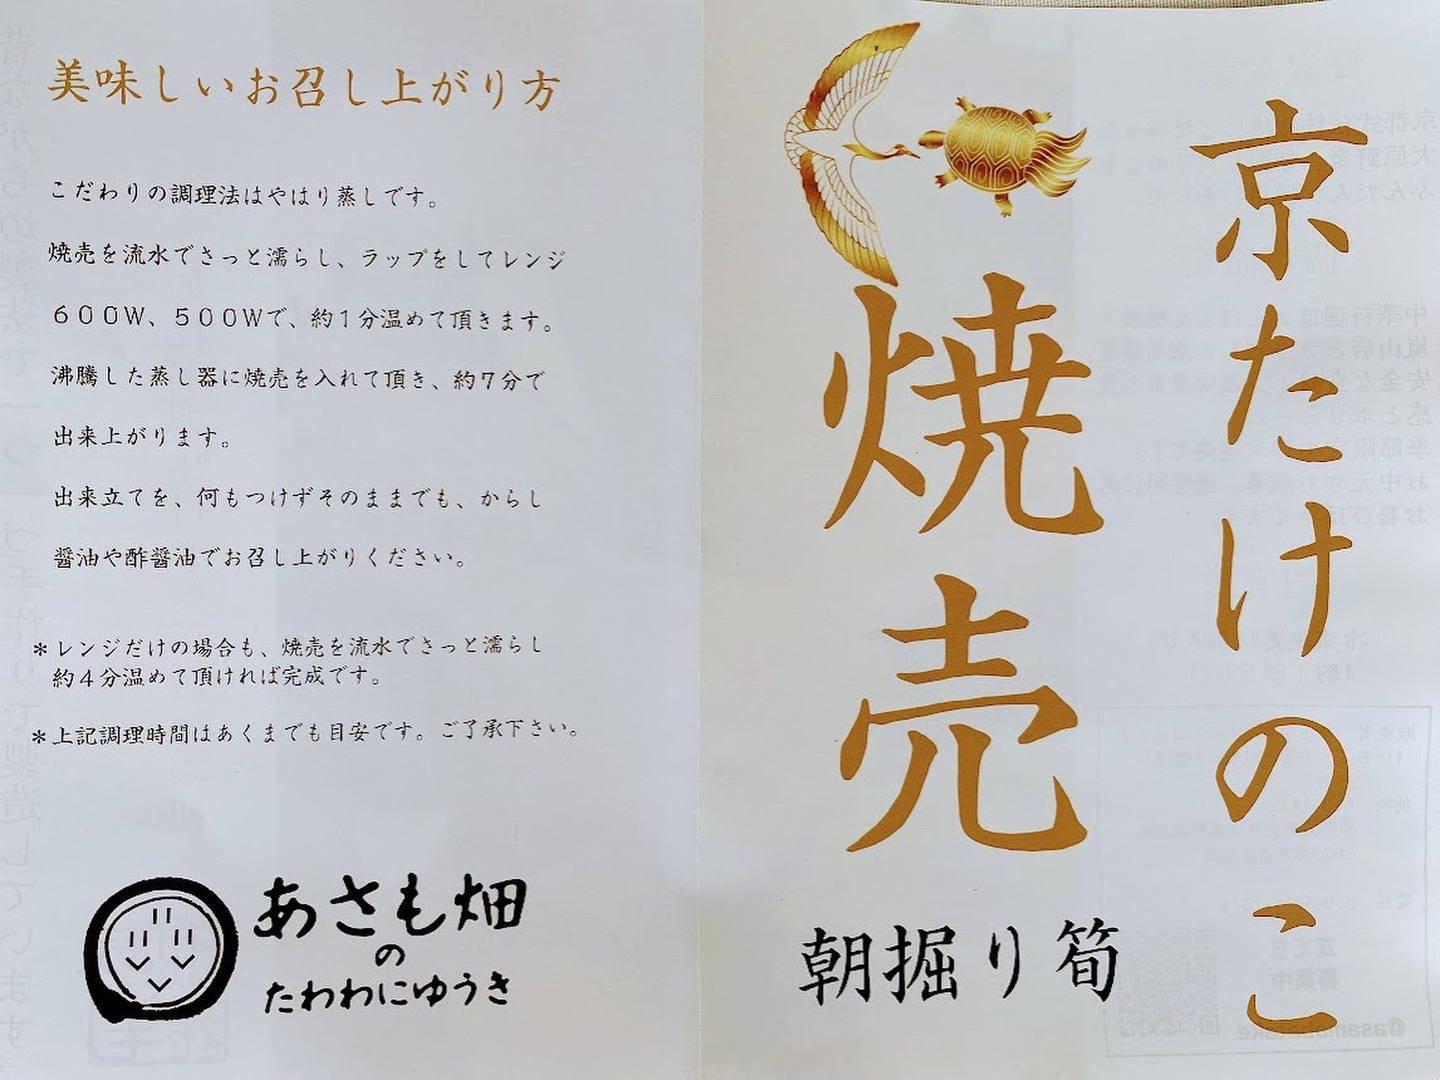 美味しいお召し上がり方
こだわりの調理法はやはり蒸しです。
焼売を流水でさっと濡らし、ラップをしてレンジ
600W、500Wで、約1分温めて頂きます。
沸騰した蒸し器に焼売を入れて頂き、約7分で
出来上がります。
出来立てを、何もつけずそのままでも、からし
醤油や酢醤油でお召し上がりください。
＊レンジだけの場合も、焼売を流水でさっと濡らし
約4分温めて頂ければ完成です。
＊上記調理時間はあくまでも目安です。ご了承下さい。
あさも畑
の
たわわにゆうき
京たけのこ
焼売
朝掘り筍